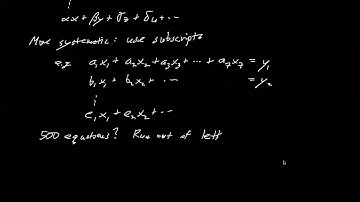 ⋮
αx + βy + σz + δu + ⋯
More systematic: use subscripts
e.g. a₁x₁ + a₂x₂ + a₃x₃ + ⋯ + a₇x₇ = y₁
b₁x₁ + b₂x₂ + ⋯ = y₂
⋮
e₁x₁ + e₂x₂ + ⋯
500 equations? Run out of lett